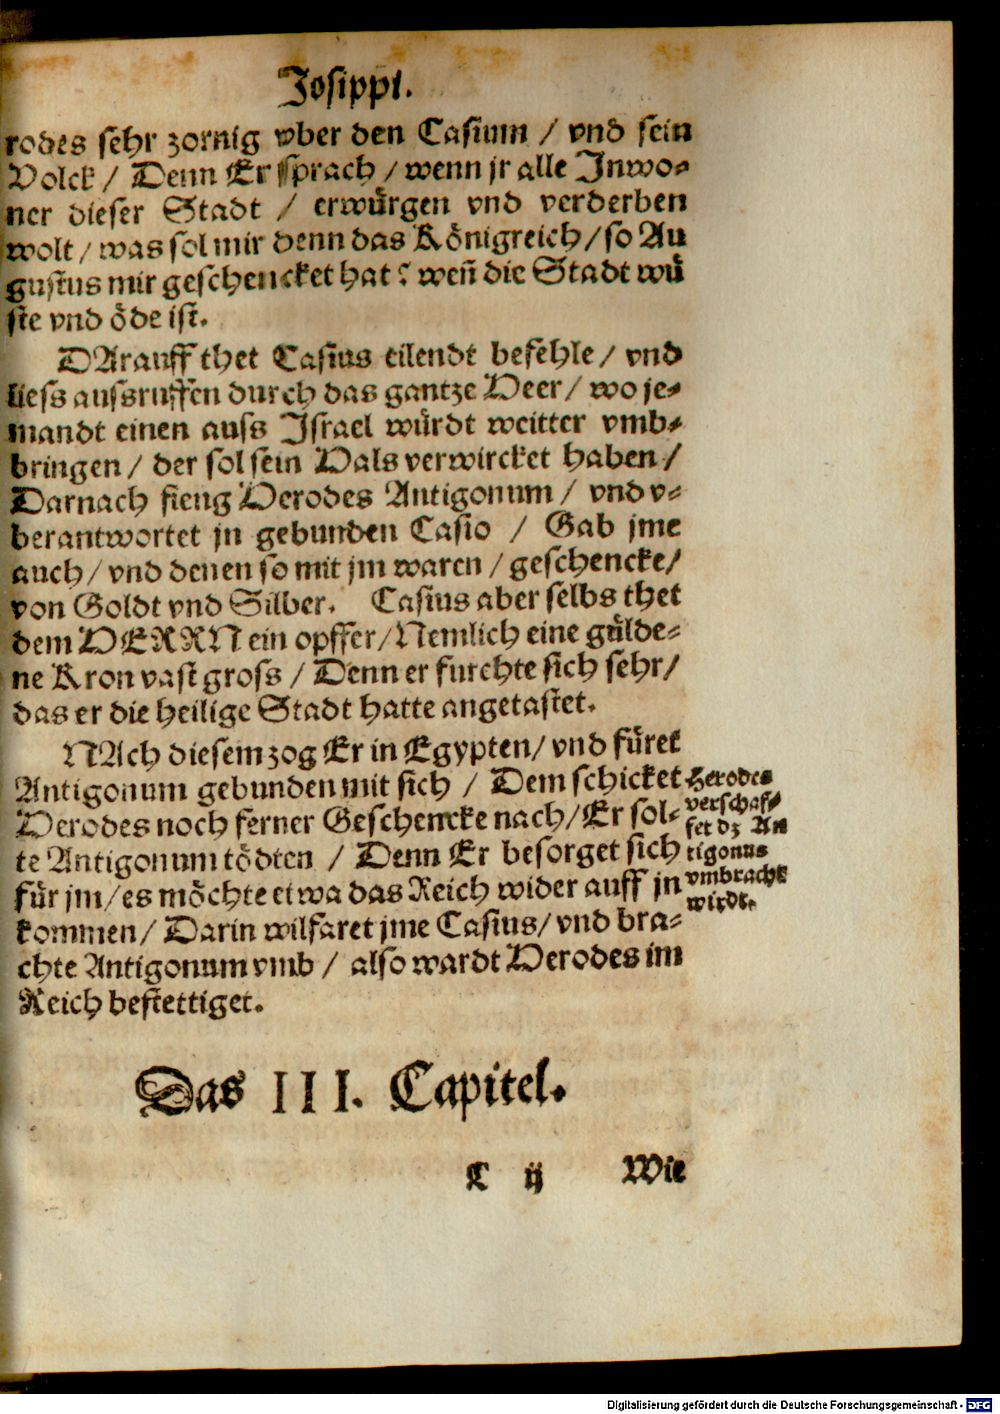 Josippi.
rodes sehr zornig vber den Casium / vnd sein
Volck / Denn Er sprach / wenn jr alle Inwo-
ner dieser Stadt / erwürgen vnd verderben
wolt / was sol mir denn das Königreich / so Au
gustus mir geschencket hat? weñ die Stadt wü
ste vnd öde ist.
DArauff thet Casius eilendt befehle / vnd
liess aussruffen durch das gantze Heer / wo je-
mandt einen auss Israel würdt weitter vmb-
bringen / der sol sein Hals verwircket haben /
Darnach fieng Herodes Antigonum / vnd v-
berantwortet jn gebunden Casio / Gab jme
auch / vnd denen so mit jm waren / geschencke /
von Goldt vnd Silber. Casius aber selbs thet
dem HERRN ein opffer / Nemlich eine gülde-
ne Kron vast gross / Denn er furchte sich sehr /
das er die heilige Stadt hatte angetastet.
NAch diesem zog Er in Egypten / vnd füret
Antigonum gebunden mit sich / Dem schicket
Herodes noch ferner Geschencke nach / Er sol-
te Antigonum tödten / Denn Er besorget sich
für jm / es möchte etwa das Reich wider auff jn
kommen / Darin wilfaret jme Casius / vnd bra-
chte Antigonum vmb / also wardt Herodes im
Reich bestettiget.
Herodes
verschaf-
fet dz An
tigonus
vmbracht
wirdt.
Das III. Capitel.
C ij Wie
Digitalisierung gefördert durch die Deutsche Forschungsgemeinschaft - DFG